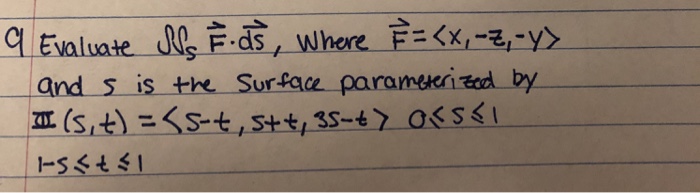 9 Evaluate ∬s F⃗·ds⃗, where F⃗=<x,-z,-y>
and s is the Surface parameterized by
Ⅲ(s,t) = <s-t, s+t, 3s-t> 0≤s≤1
1-s≤t≤1